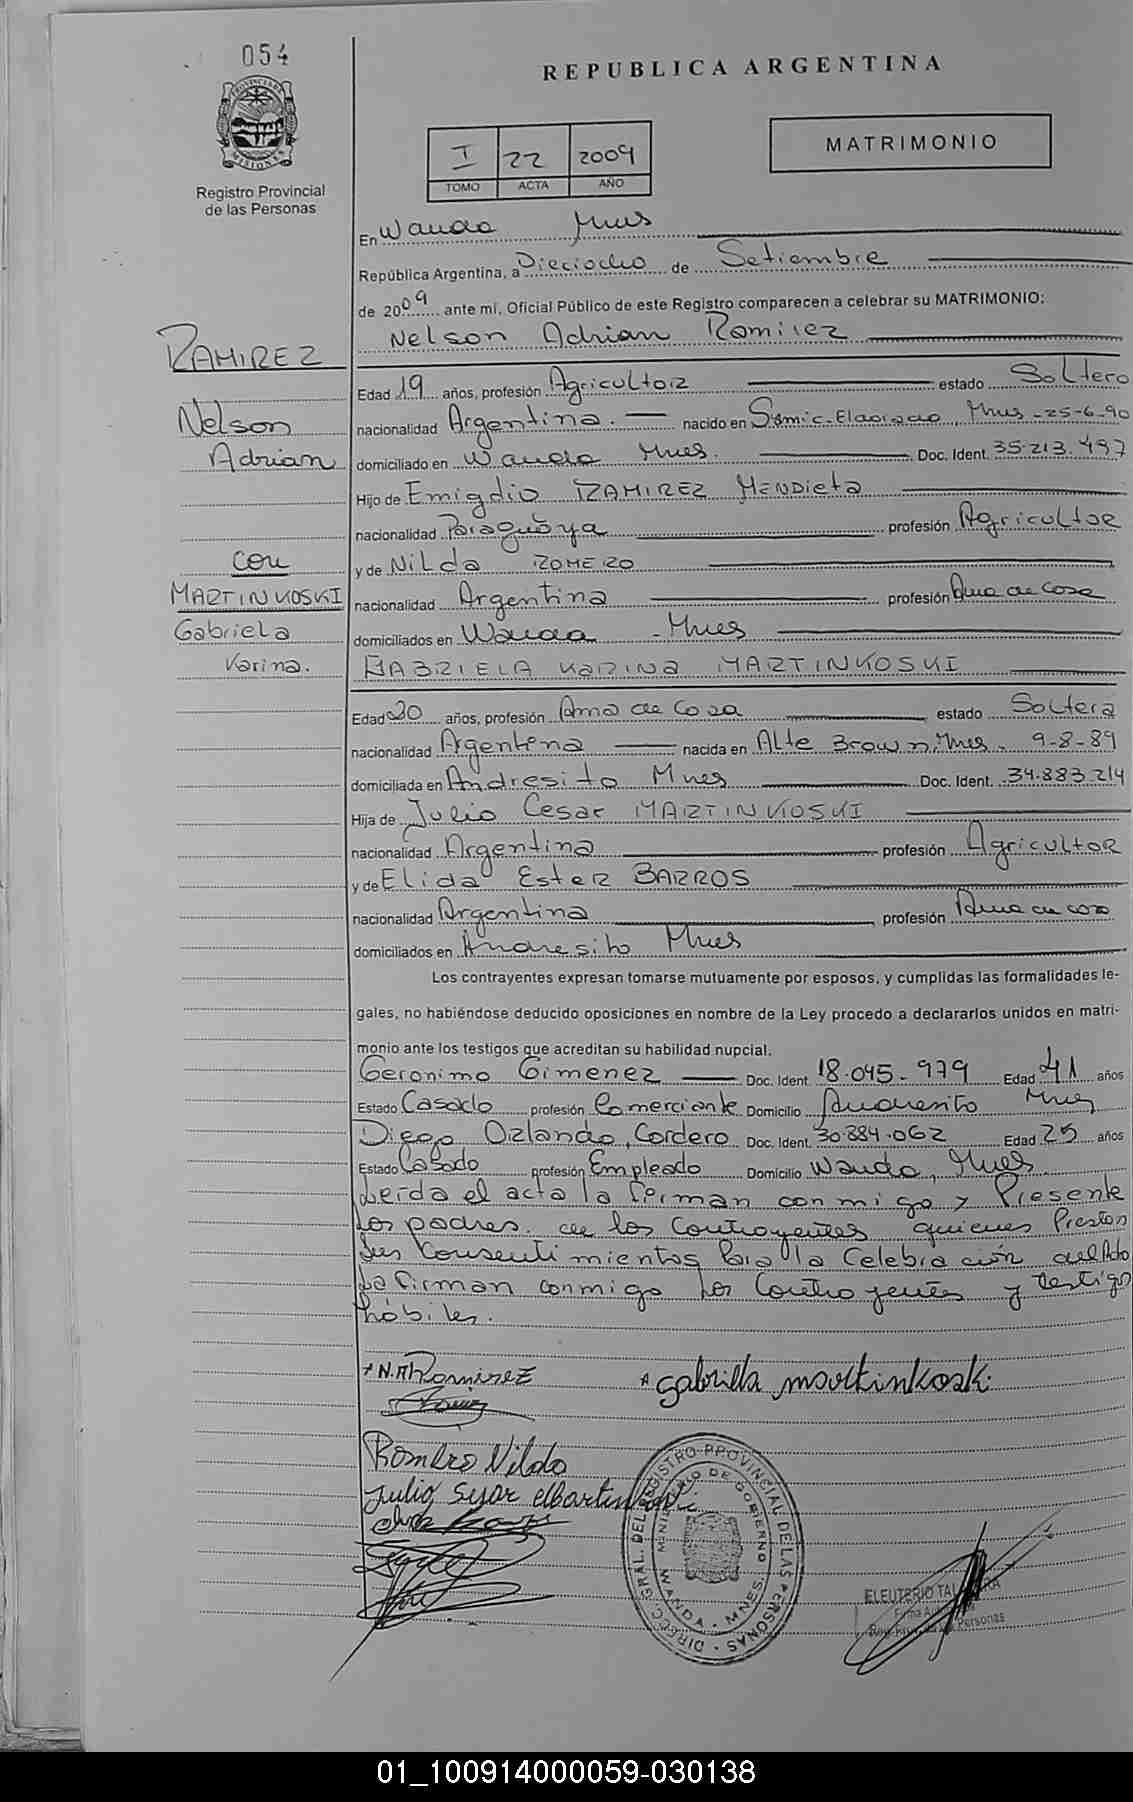 054
REPUBLICA ARGENTINA
PROVINCIA DE
MISIONES
Registro Provincial
de las Personas
I 22 2009
TOMO ACTA AÑO
MATRIMONIO
En Wanda Mnes
República Argentina, a Dieciocho de Setiembre
de 2009 ante mí, Oficial Público de este Registro comparecen a celebrar su MATRIMONIO:
Nelson Adrian Ramirez
RAMIREZ
Nelson
Adrian
con
MARTINKOSKI
Gabriela
Karina.
Edad 19 años, profesión Agricultor estado Soltero
nacionalidad Argentina. nacido en Mnes - 25-6-90
domiciliado en Wanda Mnes. Doc. Ident. 35.213.497
Hijo de Emigdio RAMIREZ MENDieta
nacionalidad Paraguaya profesión Agricultor
y de Nilda ROMERO
nacionalidad Argentina profesión Ama de casa
domiciliados en Wanda - Mnes
GABRIELA KARINA MARTINKOSKI
Edad 20 años, profesión Ama de Casa estado Soltera
nacionalidad Argentina nacida en Alte Brown, Mnes. 9-8-89
domiciliada en Andresito Mnes Doc. Ident. 34.883.214
Hija de Julio Cesar MARTINKOSKI
nacionalidad Argentina profesión Agricultor
y de Elida Ester BARROS
nacionalidad Argentina profesión Ama de casa
domiciliados en Andresito Mnes
Los contrayentes expresan tomarse mutuamente por esposos, y cumplidas las formalidades le-
gales, no habiéndose deducido oposiciones en nombre de la Ley procedo a declararlos unidos en matri-
monio ante los testigos que acreditan su habilidad nupcial.
Geronimo Gimenez Doc. Ident. 18.045.979 Edad 41 años
Estado Casado profesión Comerciante Domicilio Andresito Mnes
Diego Orlando, Cordero Doc. Ident. 30.884.062 Edad 25 años
Estado Casado profesión Empleado Domicilio Wanda, Mnes
Leída el acta la firman conmigo y Presente
Los padres de los Contrayentes quienes Prestan
Sus Consentimientos Para la Celebración del Acto
La firman conmigo los Contrayentes y testigo
hábiles.
N.A Ramirez
Gabriela martinkoski
Romero Nilda
Julio, Sesar Martinkoski
DIRECC. GRAL. DEL REGISTRO PROVINCIAL DE LAS PERSONAS
MINISTERIO DE GOBIERNO
WANDA - MNES.
ELEUTERIO
Personas
01_100914000059-030138